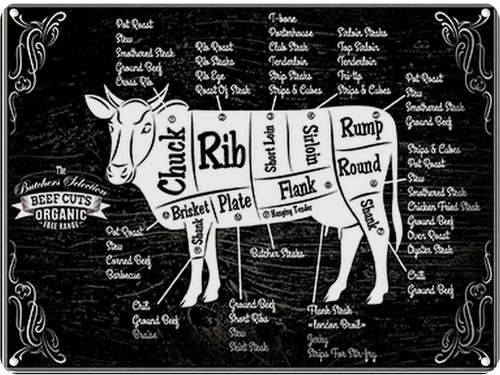 Pot Roast
Stew
Smothered Steak
Ground Beef
Cross Rib
Rib Roast
Rib Steaks
Rib Eye
Roast Of Steak
T-bone
Porterhouse
Club Steak
Tenderloin
Strip Steaks
Strips & Cubes
Sirloin Steaks
Top Sirloin
Tenderloin
Tri-tip
Strips & Cubes
Pot Roast
Stew
Smothered Steak
Ground Beef
Strips & Cubes
Pot Roast
Stew
Smothered Steak
Chicken Fried Steak
Ground Beef
Oven Roast
Oyster Steak
Chili
Ground Beef
Chuck
Rib
Short Loin
Sirloin
Rump
Round
Flank
Hanging Tender
Shank
Brisket
Plate
Shank
The
Butchers Selection
BEEF CUTS
ORGANIC
FREE RANGE
Pot Roast
Stew
Corned Beef
Barbecue
Butcher Steaks
Chili
Ground Beef
Braise
Ground Beef
Short Ribs
Stew
Skirt Steak
Flank Steak
"London Broil"
Jerky
Strips For Stir-fry